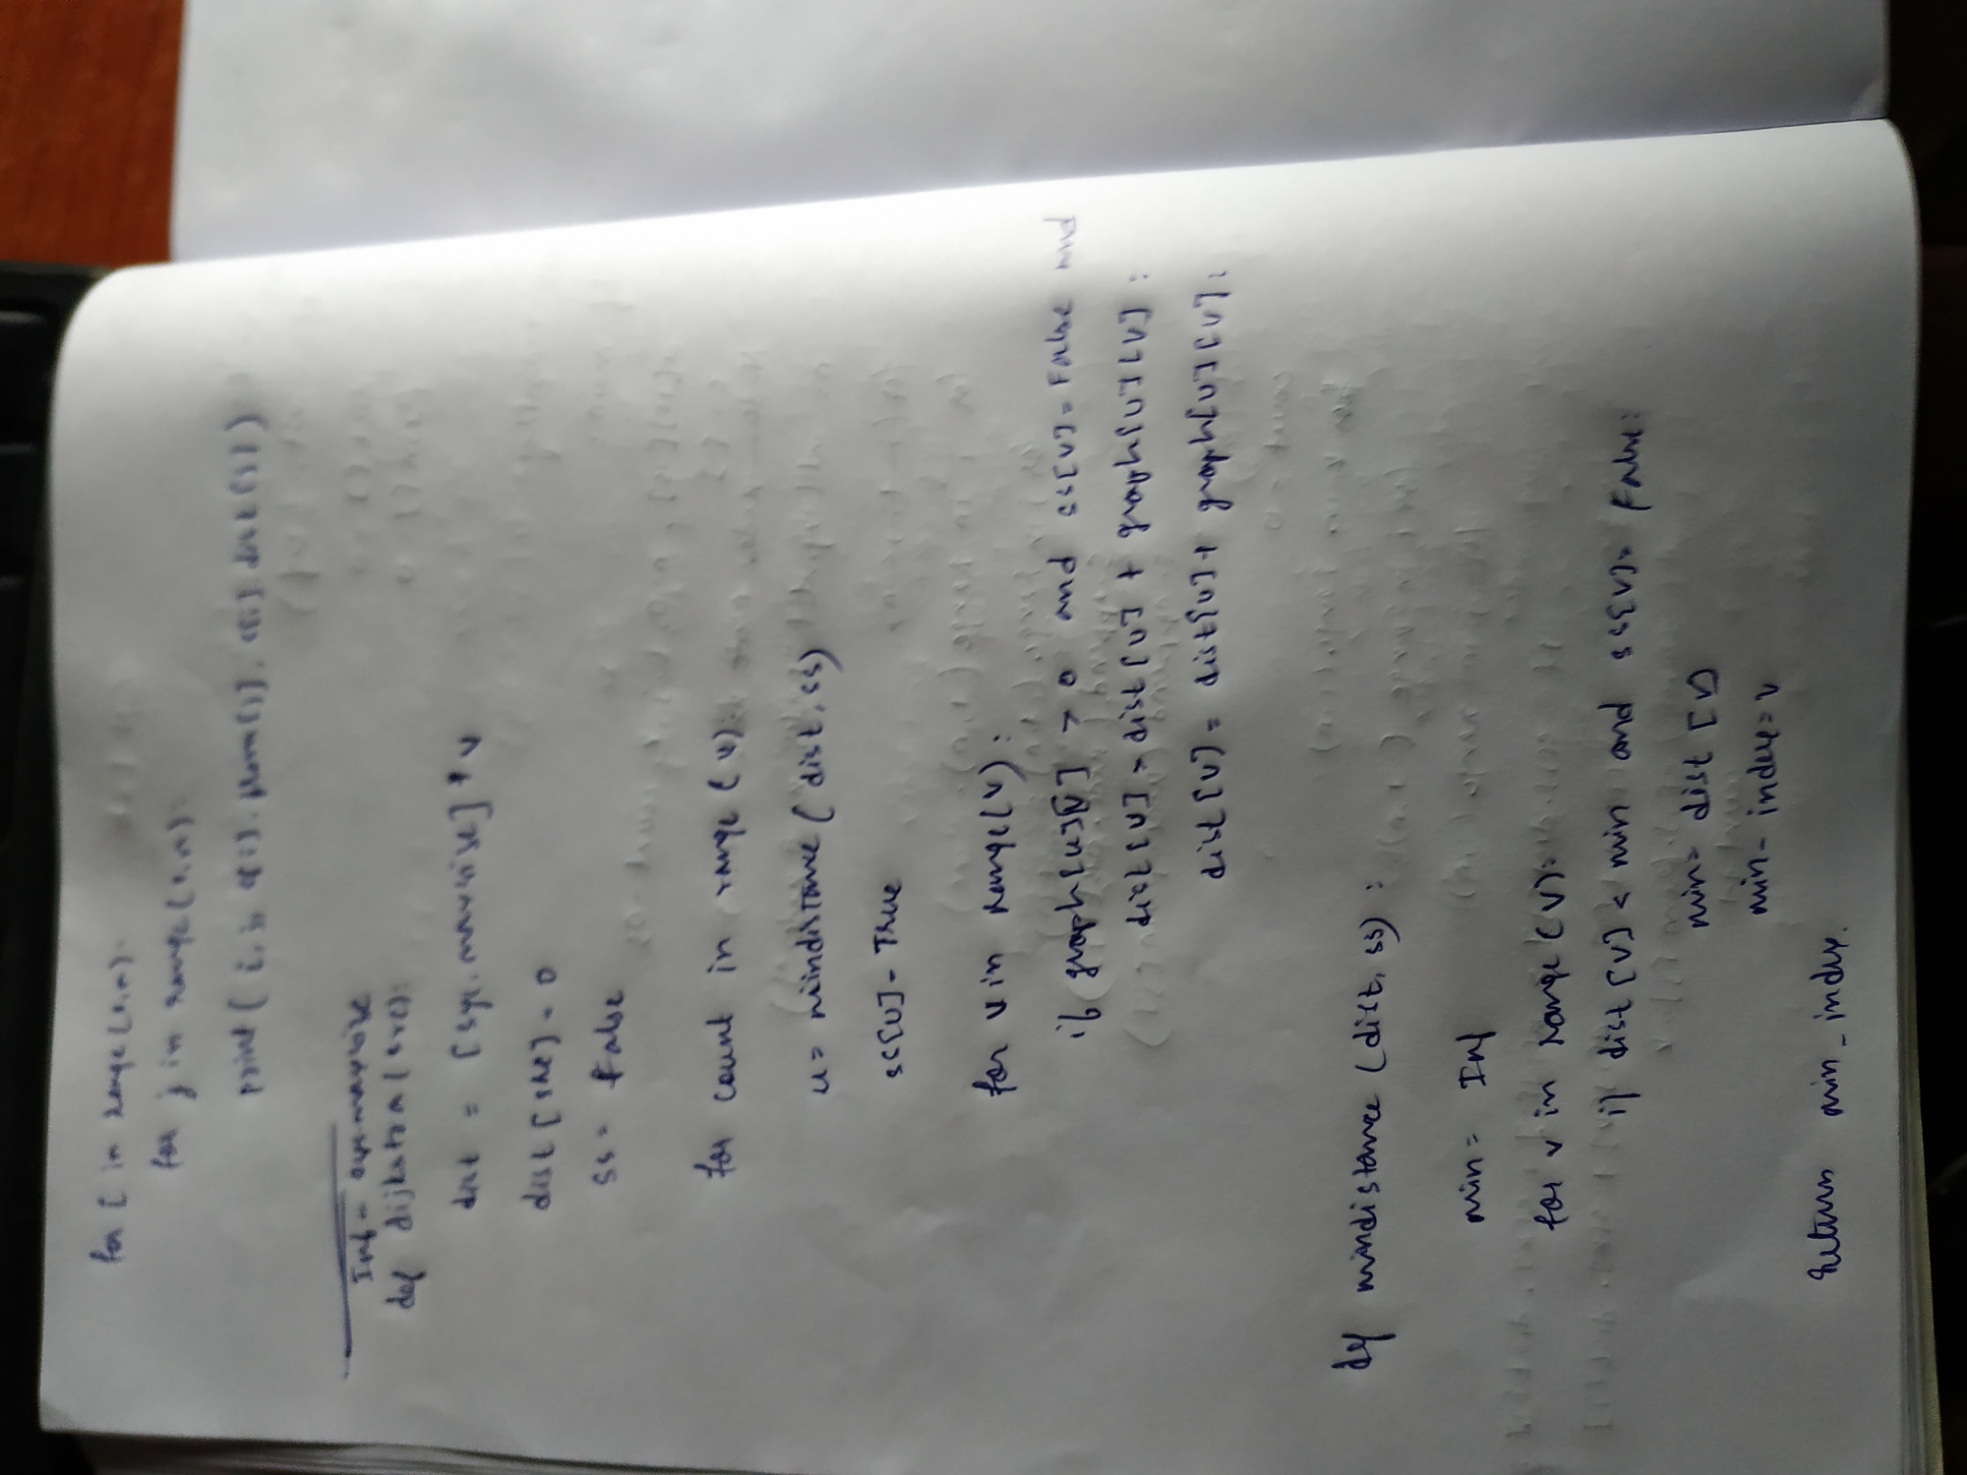 for i in range(1,n):
for j in range(1,n):
print( i, j,
Inf = sys.maxsize
def dijkstra(src):
dist = [sys.maxsize] * v
dist[src] = 0
ss = False
for count in range(v):
u = mindistance(dist,ss)
ss[u] = True
for v in range(v):
if graph[u][v] > 0 and ss[v] = False and
dist[v] > dist[u] + graph[u][v] :
dist[v] = dist[u] + graph[u][v];
def mindistance(dist, ss) :
min = Inf
for v in range(v):
if dist[v] < min and ss[v] = False:
min = dist[v]
min_index = v
return min_index.